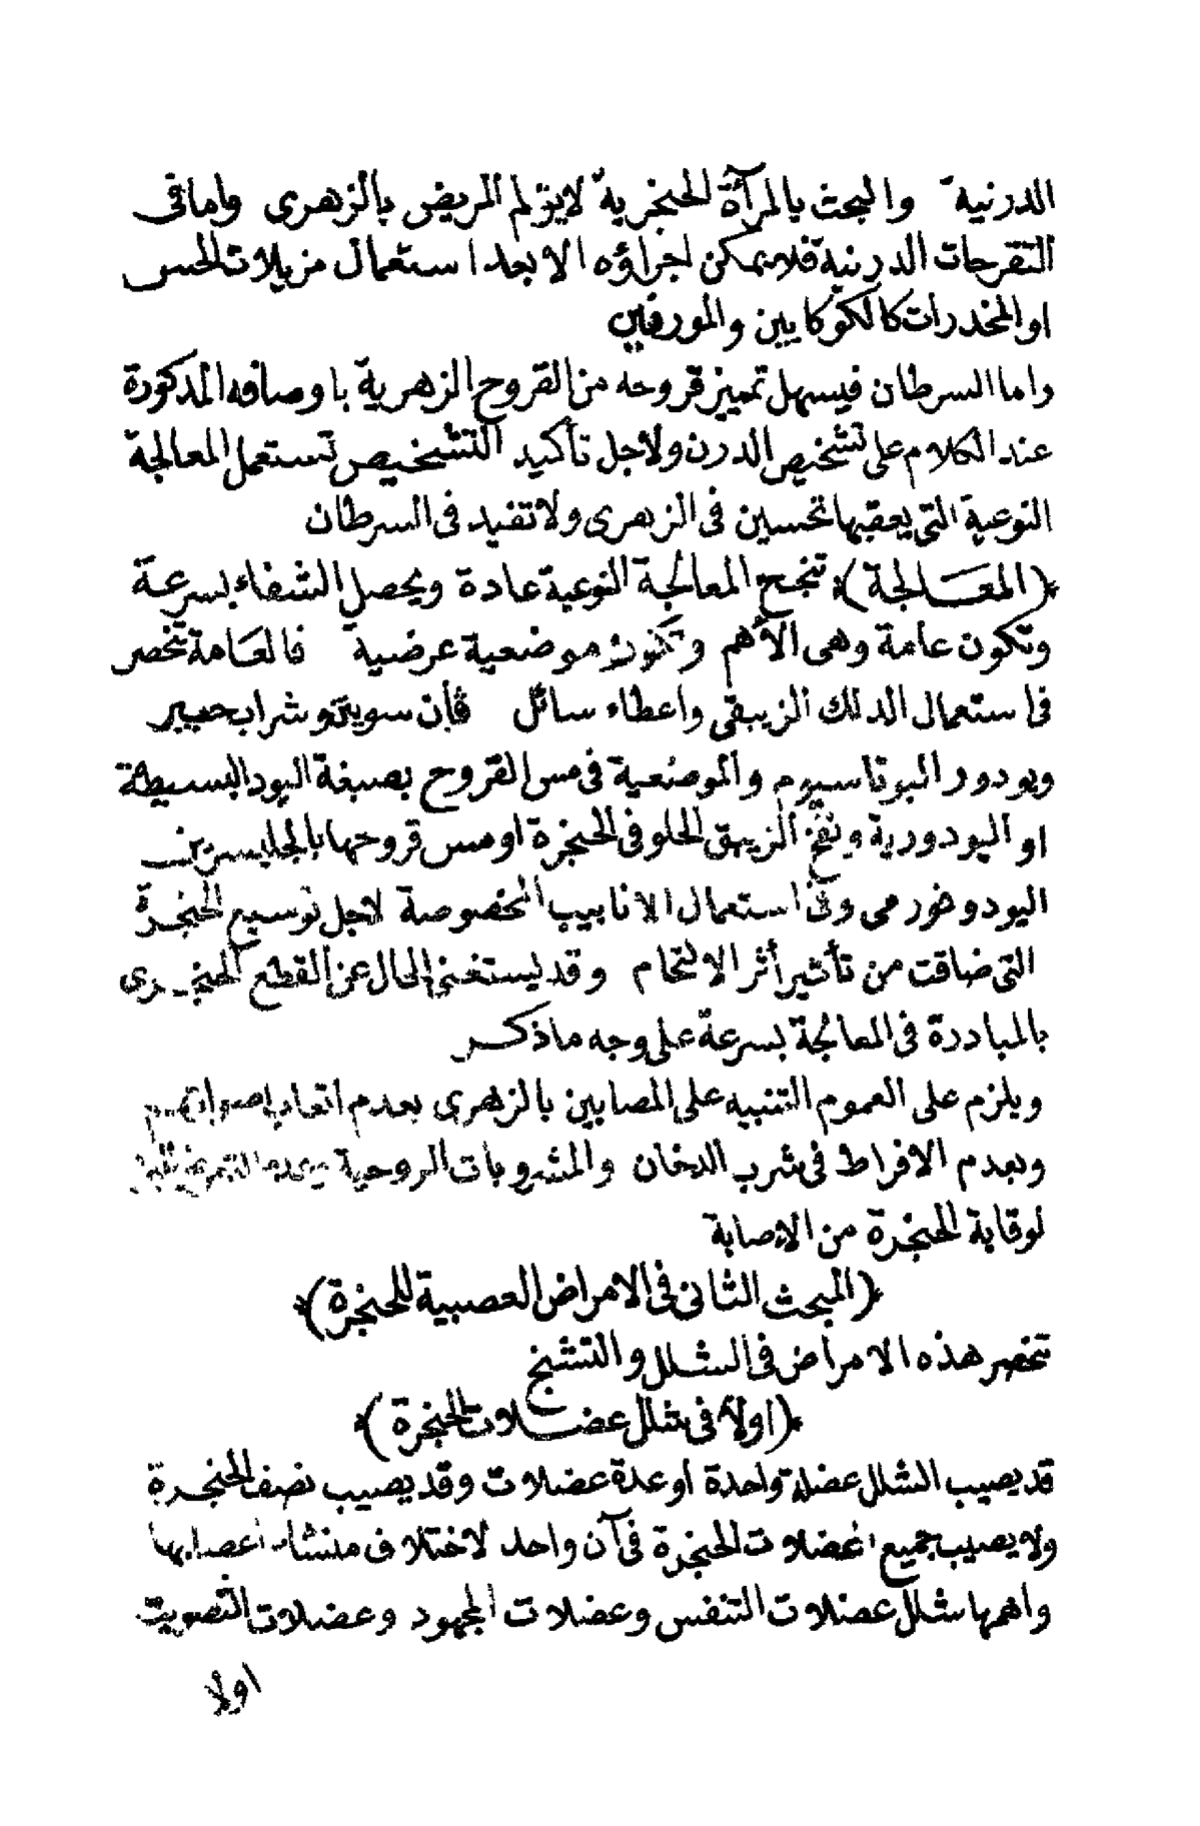 الدرنية والبحث بالمرآة الحنجرية لايؤلم المريض بالزهرى وامافى
التقرحات الدرنية فلا يمكن اجراؤه الا بعد استعمال مزيلات الحس
او المخدرات كالكوكايين والمورفين
واما السرطان فيسهل تمييز قروحه من القروح الزهرية باوصافه المذكورة
عند الكلام على تشخيص الدرن ولاجل تأكيد التشخيص تستعمل المعالجة
النوعية التى يعقبها تحسين فى الزهرى ولا تفيد فى السرطان
﴿المعالجة﴾ تنجح المعالجة النوعية عادة ويحصل الشفاء بسرعة
وتكون عامة وهى الأهم وتكون موضعية عرضية فالعامة تنحصر
فى استعمال الدلك الزيبقى واعطاء سائل ڤأن سويتن وشراب جيبير
ويودور البوتاسيوم والموضعية فى مس القروح بصبغة اليود البسيطة
او اليودورية ونفخ الزيبق الحلو فى الحنجرة او مس قروحها بالجليسرين
اليودوفورمى وفى استعمال الانابيب المخصوصة لاجل توسيع الحنجرة
التى ضاقت من تأثير أثر الالتحام وقد يستغنى الحال عن القطع الحنجرى
بالمبادرة فى المعالجة بسرعة على وجه ماذكر
ويلزم على العموم التنبيه على المصابين بالزهرى بعدم اتعاب اصواتهم
وبعدم الافراط فى شرب الدخان والمشروبات الروحية وعدم التعرض للبرد
لوقاية الحنجرة من الاصابة
﴿المبحث الثانى فى الامراض العصبية للحنجرة﴾
تنحصر هذه الامراض فى الشلل والتشنج
﴿اولا فى شلل عضلات الحنجرة﴾
قد يصيب الشلل عضلة واحدة او عدة عضلات وقد يصيب نصف الحنجرة
ولا يصيب جميع عضلات الحنجرة فى آن واحد لاختلاف منشاء اعصابها
واهمها شلل عضلات التنفس وعضلات المجهود وعضلات التصويت
اولا